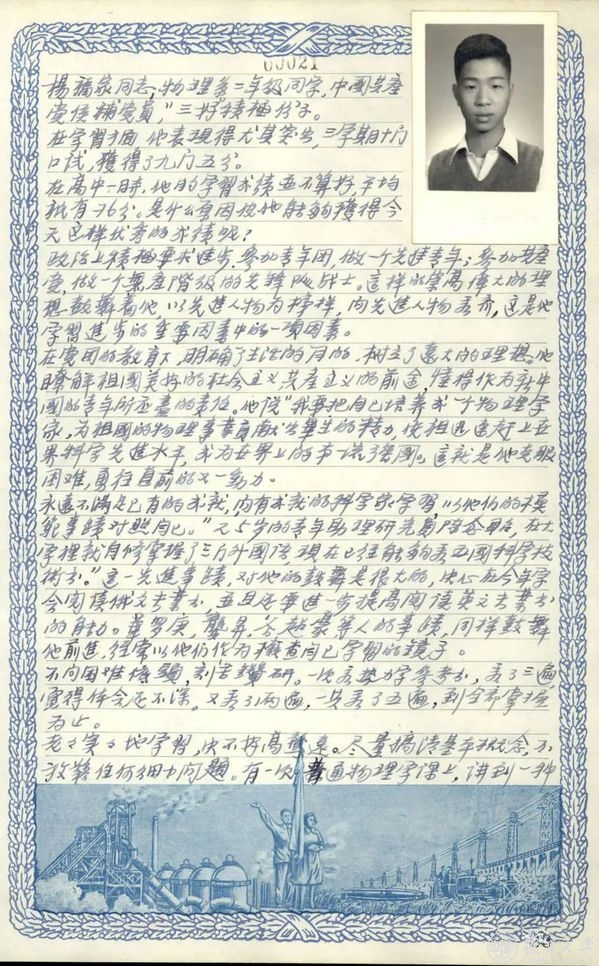 00021
楊福家同志，物理系二年級同学，中國共產
党候補党員，"三好積極分子。
在学習方面，他表現得尤其突出，三学期十门
口试，獲得了九门五分。
在高中时，他的学習成績並不算好，平均
祇有76分。是什么原因使他能夠獲得今
天这样优秀的成績呢？
政治上積極要求進步，参加青年团，做一个先進青年；参加共產
党，做一个無產階級的先鋒队战士。这样的崇高偉大的理
想鼓舞着他，以先進人物为榜样，向先進人物看齐，这是他
学習進步的重要因素中的一項因素。
在党团的教育下，明确了生活的目的，树立了遠大的理想。他
瞭解祖国美好的社会主义共產主义的前途，懂得作为新中
國的青年所应盡的責任。他说"我要把自己培养成一个物理学
家，为祖國的物理事業貢献出畢生的精力，使祖國迅速趕上世
界科学先進水平，成为世界上的
強國。这就是他克服
困难，勇往直前的又一動力。
永遠不滿足已有的成就，向有成就的科学家学習，"以他们的模
範事績对照自己。"25岁的青年助理研究員陸
，在大
学裡就自修掌握了三门外國语，現在已经能夠看五國科学技
術書。"这一先進事績，对他的鼓舞是很大的，决心在今年学
会阅读俄文書，並且还要進一步提高阅读英文書
的能力。華罗庚，龔昇，谷超豪等人的事績，同样鼓舞
他前進，经常以他们作为檢查自己学習的鏡子。
不向困难低頭，刻苦鑽研。一次看热力学参考書，看了三遍，
覺得体会还不深。又看了兩遍，一共看了五遍，到全部掌握
为止。
老老实实地学習，决不好高騖遠。尽量搞清基本概念，不
放鬆任何細小问題。有一次普通物理学課上，讲到一种